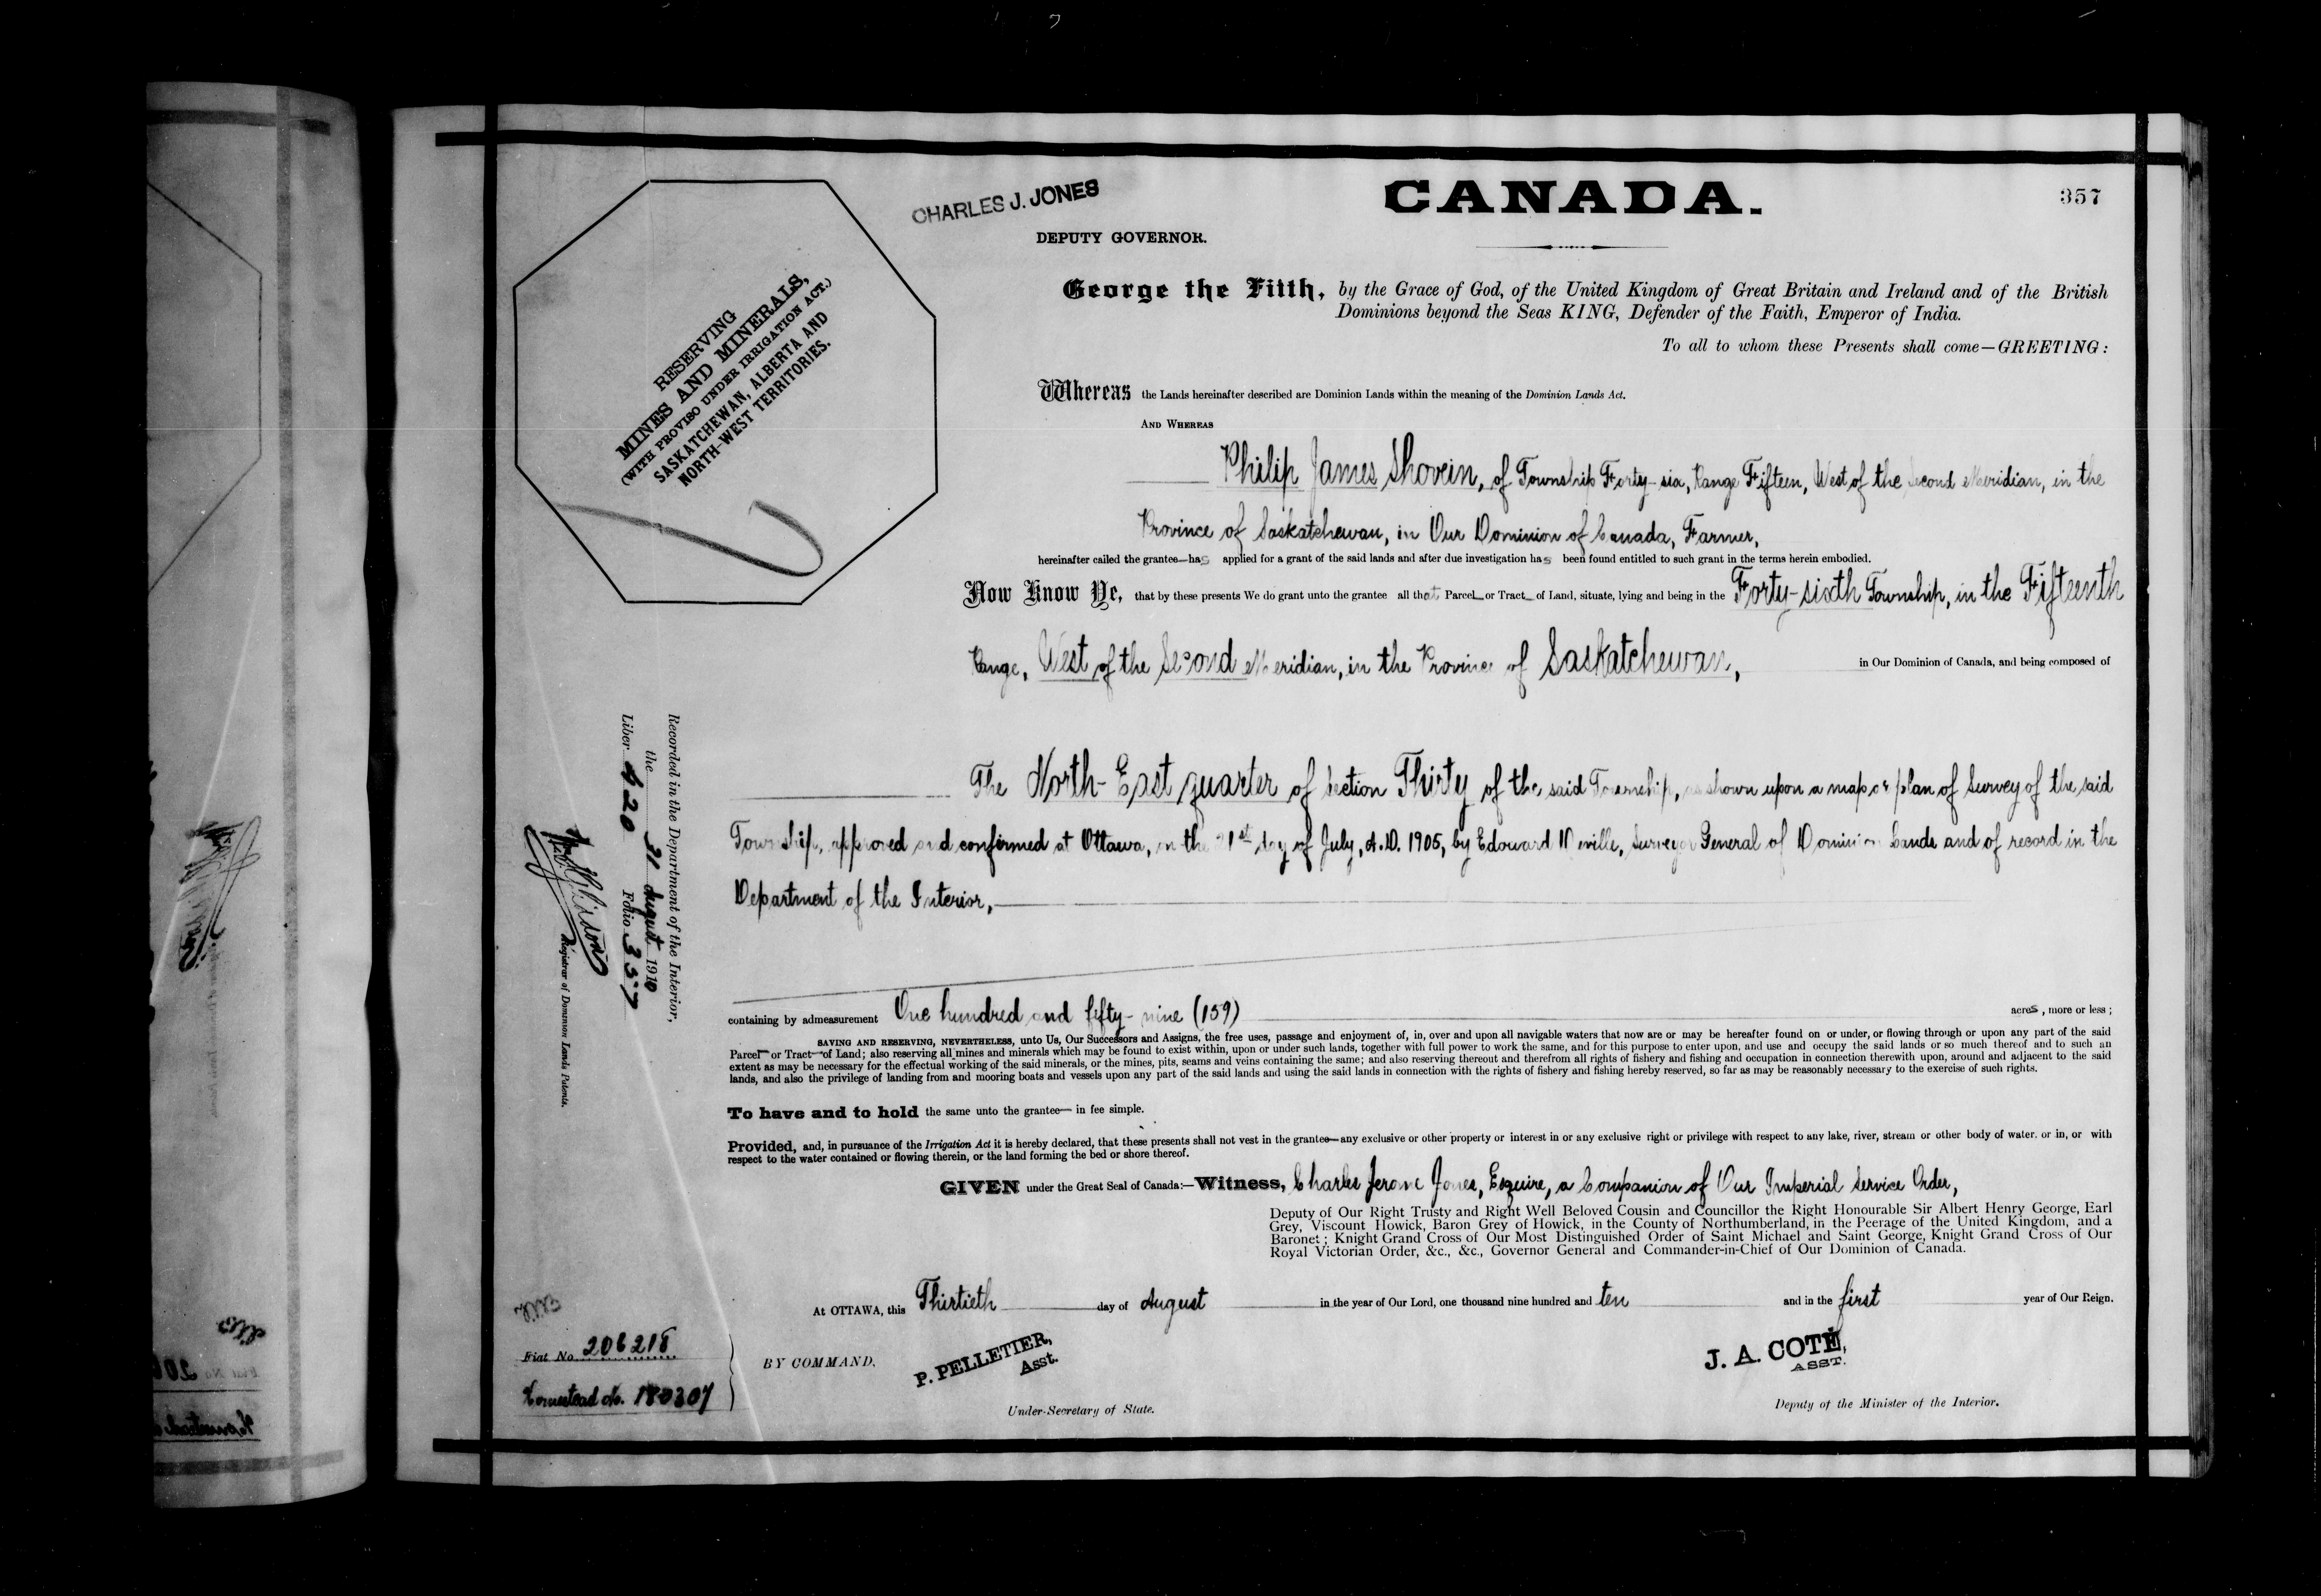 CHARLES J. JONES
DEPUTY GOVERNOR.
CANADA.
357
RESERVING
MINES AND MINERALS,
(WITH PROVISO UNDER IRRIGATION ACT.)
SASKATCHEWAN, ALBERTA AND
NORTH-WEST TERRITORIES.
George the Fifth, by the Grace of God, of the United Kingdom of Great Britain and Ireland and of the British
Dominions beyond the Seas KING, Defender of the Faith, Emperor of India.
To all to whom these Presents shall come—GREETING:
Whereas the Lands hereinafter described are Dominion Lands within the meaning of the Dominion Lands Act.
AND WHEREAS
Philip James Shovein, of Township Forty-six, Range Fifteen, West of the Second Meridian, in the
Province of Saskatchewan, in Our Dominion of Canada, Farmer,
hereinafter called the grantee—has applied for a grant of the said lands and after due investigation has been found entitled to such grant in the terms herein embodied.
Now Know Ye, that by these presents We do grant unto the grantee all that Parcel or Tract of Land, situate, lying and being in the Forty-sixth Township, in the Fifteenth
Range, West of the Second Meridian, in the Province of Saskatchewan, in Our Dominion of Canada, and being composed of
The North-East quarter of Section Thirty of the said Township, as shown upon a map or plan of Survey of the said
Township, approved and confirmed at Ottawa, on the 21st day of July, A.D. 1905, by Edouard Deville, Surveyor General of Dominion Lands and of record in the
Department of the Interior,
containing by admeasurement One hundred and fifty-nine (159) acres, more or less;
SAVING AND RESERVING, NEVERTHELESS, unto Us, Our Successors and Assigns, the free uses, passage and enjoyment of, in, over and upon all navigable waters that now are or may be hereafter found on or under, or flowing through or upon any part of the said
Parcel or Tract of Land; also reserving all mines and minerals which may be found to exist within, upon or under such lands, together with full power to work the same, and for this purpose to enter upon, and use and occupy the said lands or so much thereof and to such an
extent as may be necessary for the effectual working of the said minerals, or the mines, pits, seams and veins containing the same; and also reserving thereout and therefrom all rights of fishery and fishing and occupation in connection therewith upon, around and adjacent to the said
lands, and also the privilege of landing from and mooring boats and vessels upon any part of the said lands and using the said lands in connection with the rights of fishery and fishing hereby reserved, so far as may be reasonably necessary to the exercise of such rights.
To have and to hold the same unto the grantee— in fee simple.
Provided, and, in pursuance of the Irrigation Act it is hereby declared, that these presents shall not vest in the grantee—any exclusive or other property or interest in or any exclusive right or privilege with respect to any lake, river, stream or other body of water, or in, or with
respect to the water contained or flowing therein, or the land forming the bed or shore thereof.
GIVEN under the Great Seal of Canada:—Witness, Charles Jerome Jones, Esquire, a Companion of Our Imperial Service Order,
Deputy of Our Right Trusty and Right Well Beloved Cousin and Councillor the Right Honourable Sir Albert Henry George, Earl
Grey, Viscount Howick, Baron Grey of Howick, in the County of Northumberland, in the Peerage of the United Kingdom, and a
Baronet; Knight Grand Cross of Our Most Distinguished Order of Saint Michael and Saint George, Knight Grand Cross of Our
Royal Victorian Order, &c., &c., Governor General and Commander-in-Chief of Our Dominion of Canada.
At OTTAWA, this Thirtieth day of August in the year of Our Lord, one thousand nine hundred and ten and in the first year of Our Reign.
BY COMMAND,
P. PELLETIER,
Asst.
Under-Secretary of State.
J. A. COTÉ,
ASST.
Deputy of the Minister of the Interior.
Recorded in the Department of the Interior,
the 31 August 1910
Liber 420 Folio 357
Registrar of Dominion Lands Patents.
Fiat No 206218
Homestead No. 180307